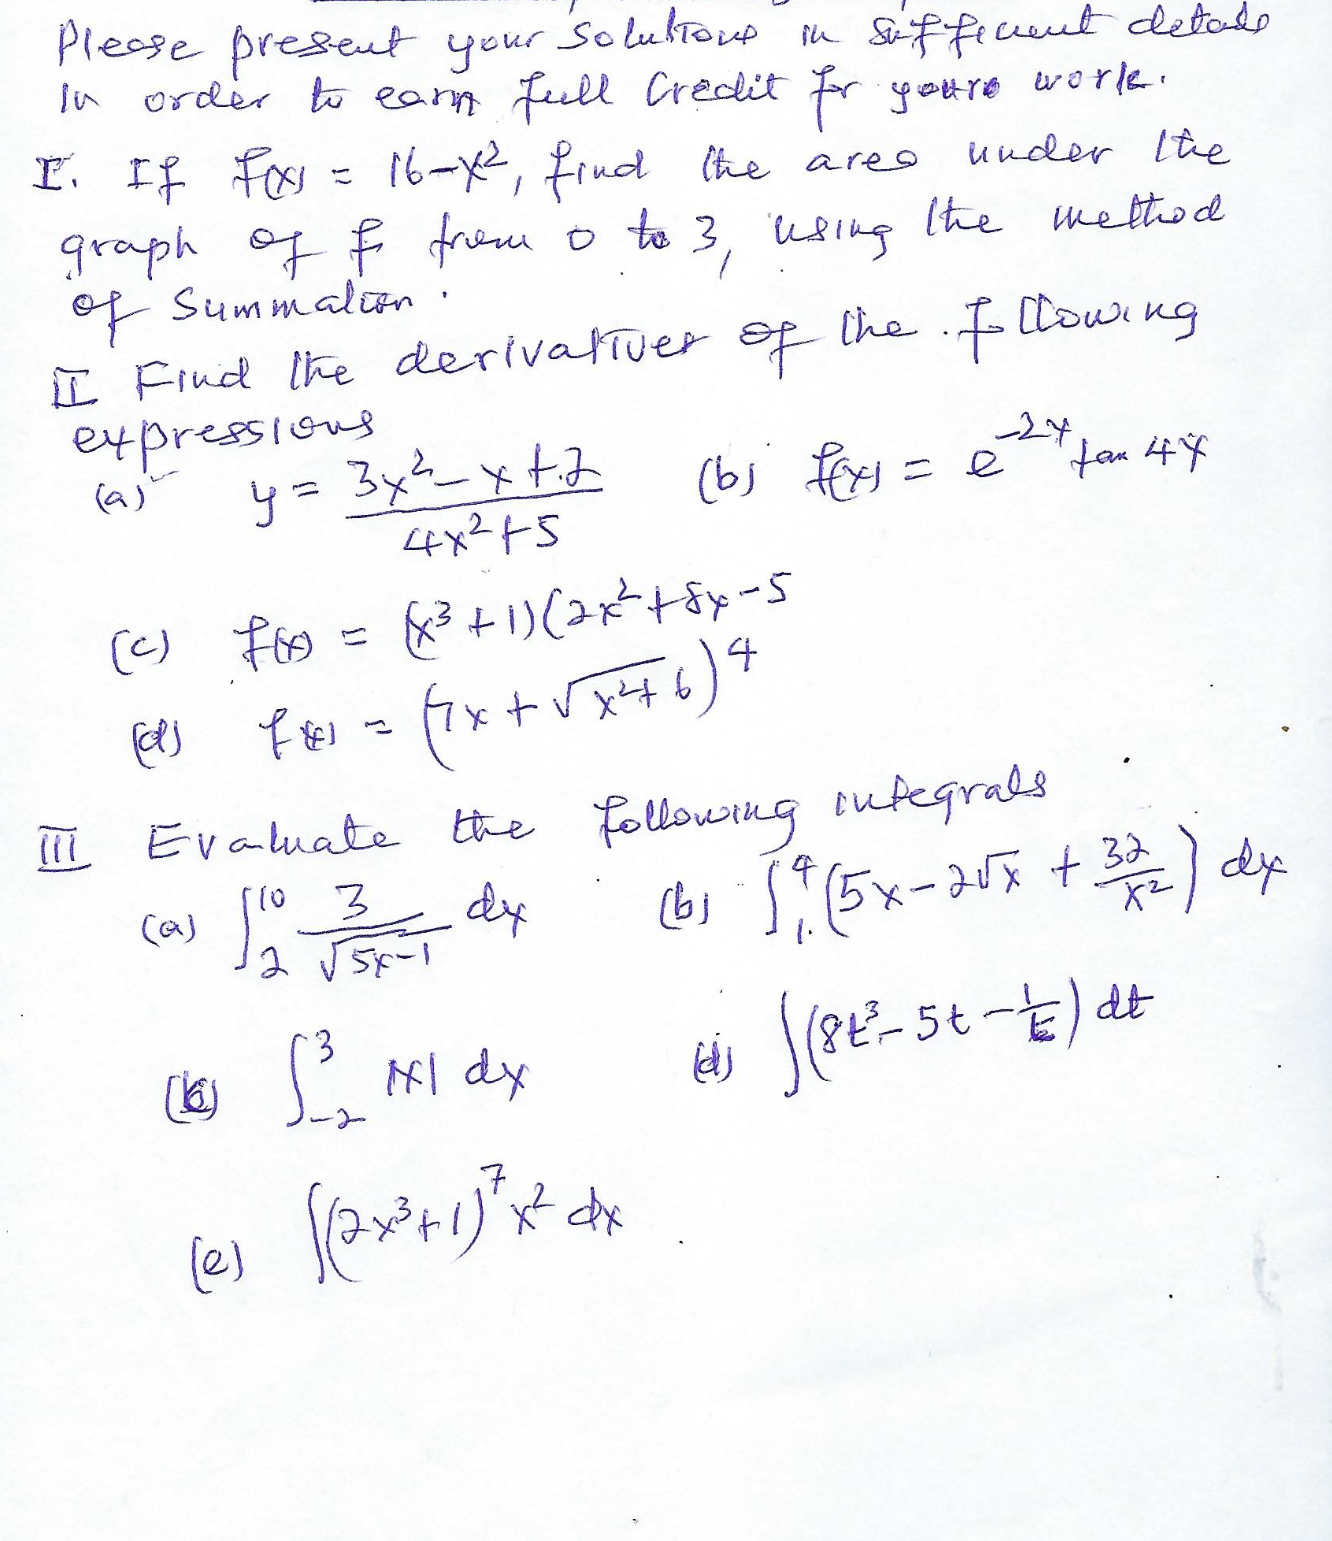 Please present your solutions in sufficient details
In order to earn full Credit for yours work.
I. If f(x) = 16-x², find the area under the
graph of f from 0 to 3, using the method
of Summation.
II Find the derivatives of the following
expressions
(a) y = (3x²-x+2)/(4x²+5) (b) f(x) = e^(-2x) tan 4x
(c) f(x) = (x³+1)(2x²+8x-5
(d) f(x) = (7x + √(x²+6))⁴
III Evaluate the following integrals
(a) ∫₂¹⁰ 3/√(5x-1) dx (b) ∫₁⁴ (5x-2√x + 32/x²) dx
(c) ∫₋₂³ |x| dx (d) ∫(8t³-5t-1/t) dt
(e) ∫(2x³+1)⁷ x² dx